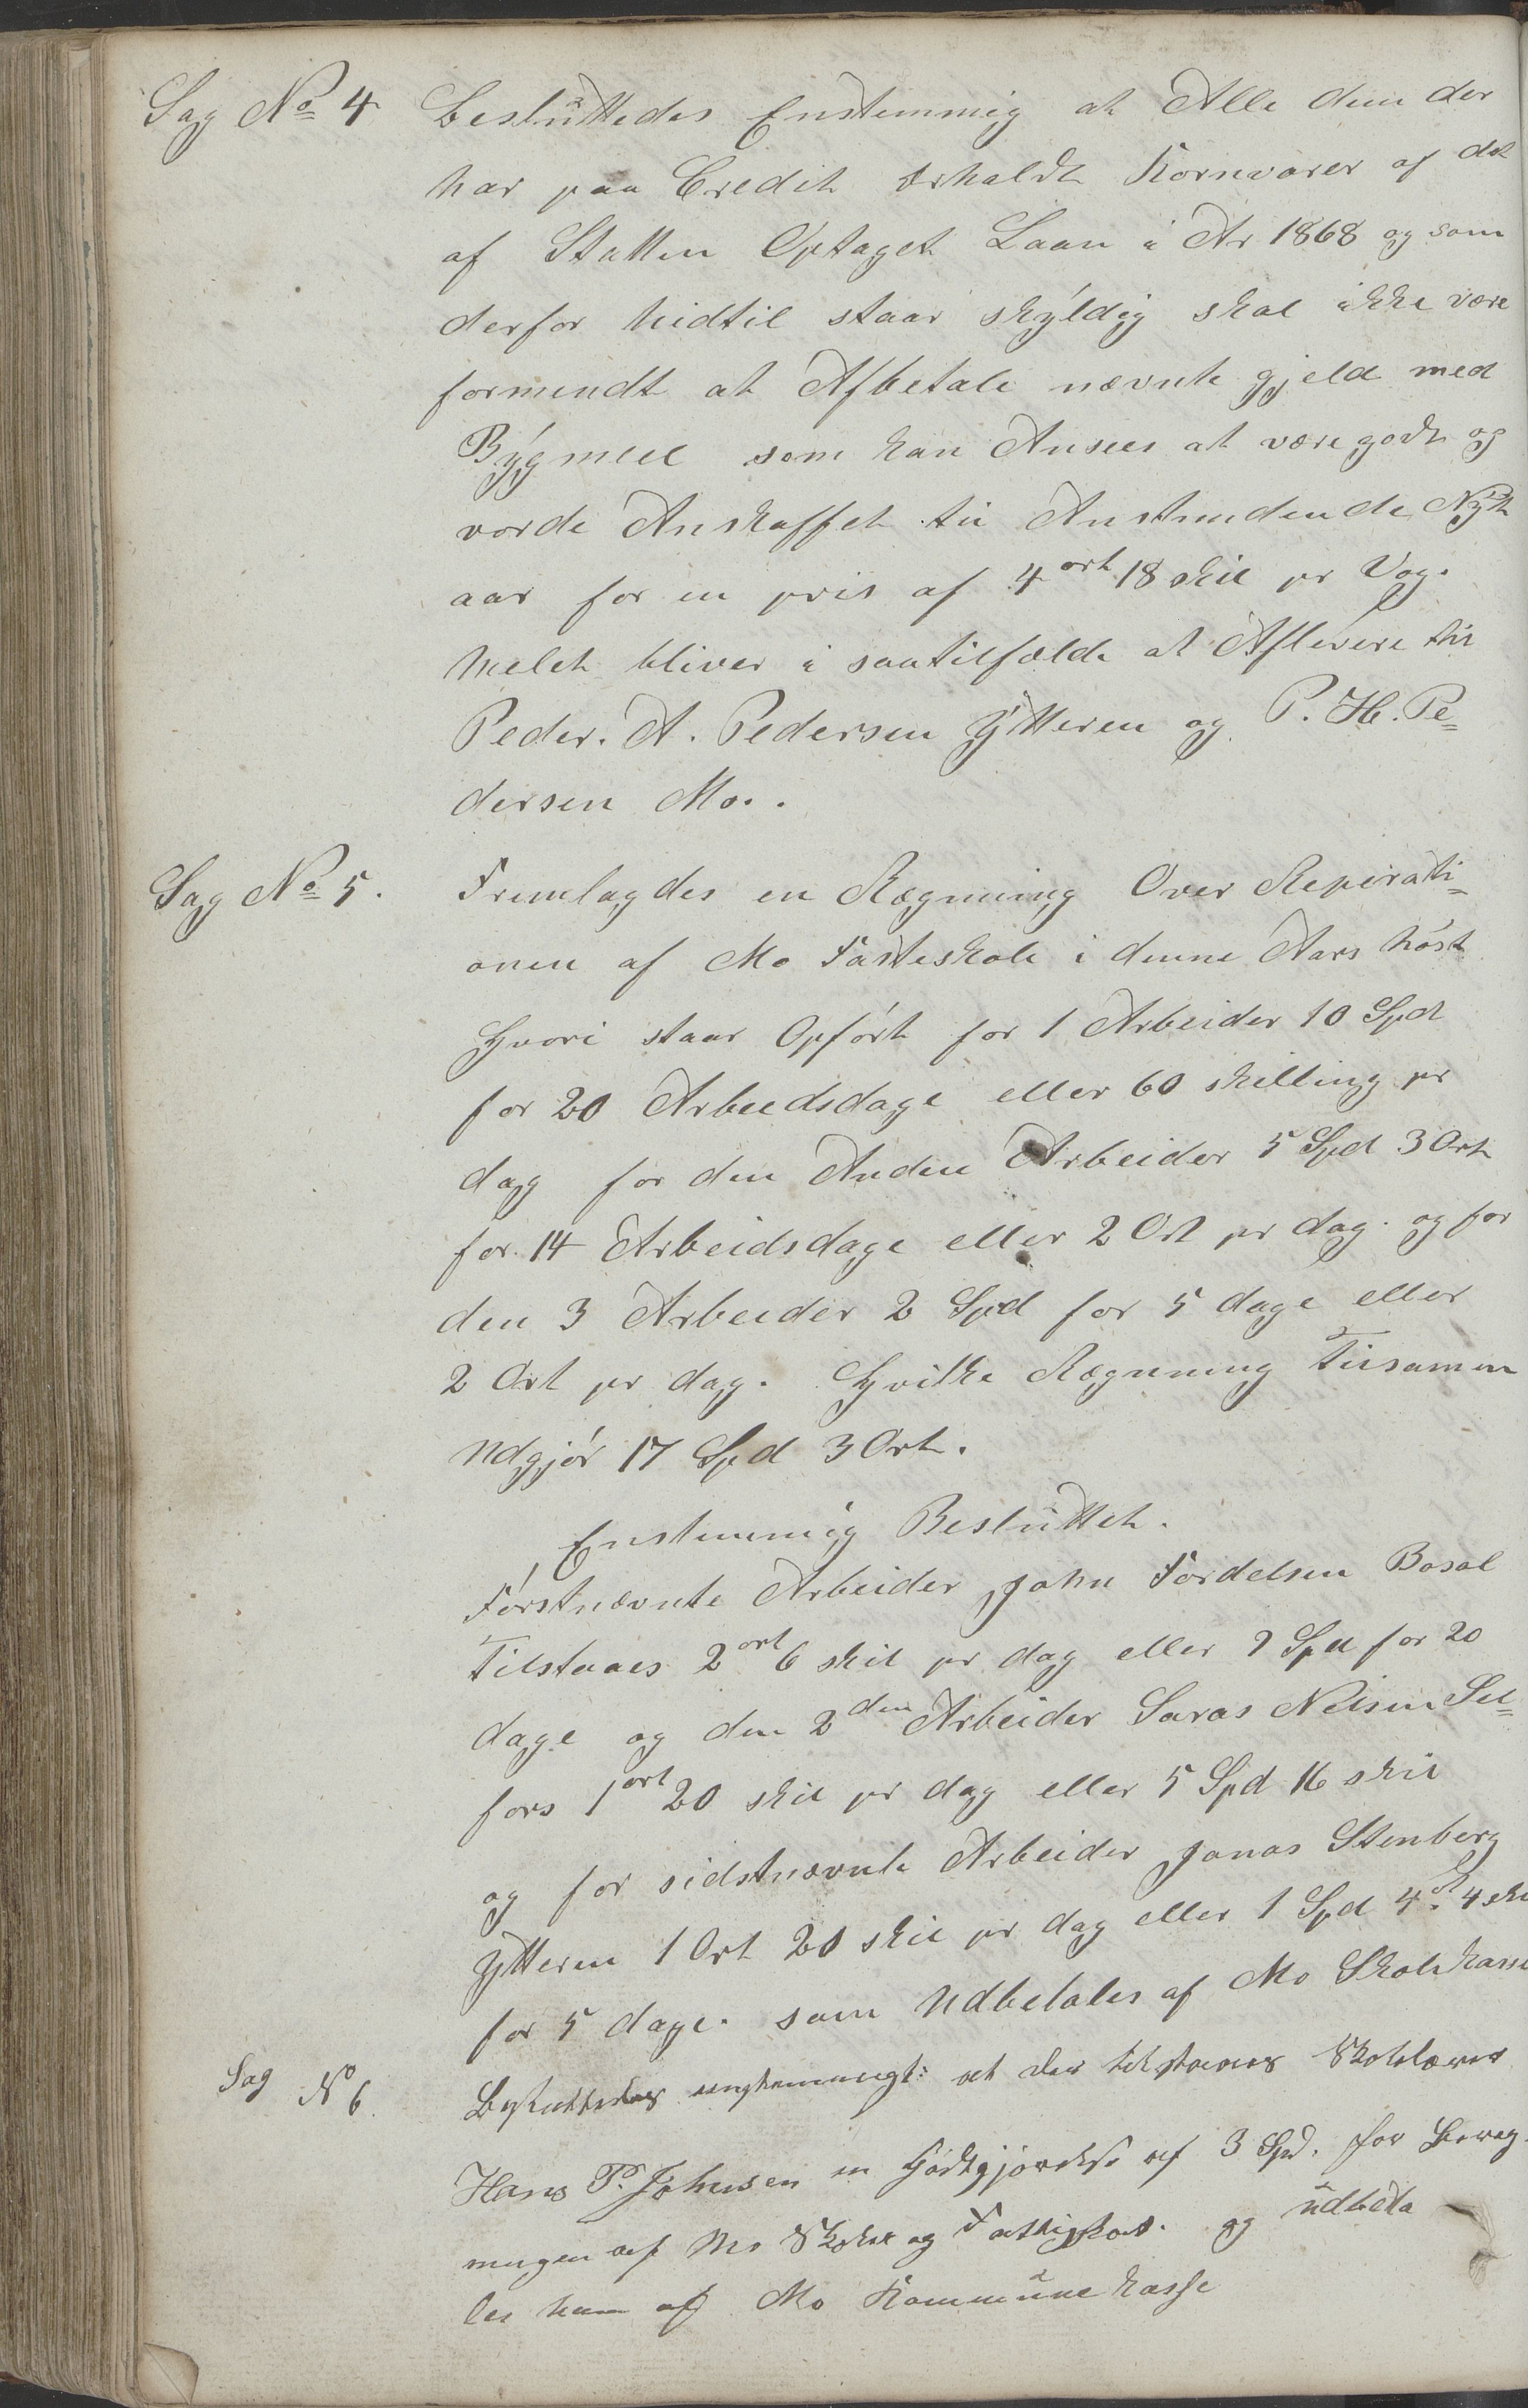 Sag No 4 Besluttedes Enstemmig at Alle dem der
har paa Credit Erholdt Kornvarer af det
af Statten Optaget Laan i Ar 1868 og som
derfor hidtil staar skyldig skal ikke være
formendt at Afbetale nævnte gjeld med
Bygmeel som kan Ansees at være godt og
vorde Anskaffet til Anstundende Nyt
aar for en pris af 4 ort 18 skil pr Vog.
melet bliver i saatilfælde at Aflevere til
Peder. A. Pedersen Ytteren og P. H. Pe=
dersen Mo.
Sag No 5. Fremlagdes en Rægnning Over Reperati=
onen af Mo Fasteskole i denne Aars høst
Hvori staar Opført for 1 Arbeider 10 Spd
for 20 Arbeidsdage eller 60 skilling pr
dag for den Anden Arbeider 5 Spd 3 Ort
for 14 Arbeidsdage eller 2 Ort pr dag. og for
den 3 Arbeider 2 Spd for 5 dage eller
2 Ort pr dag. Hvilke Rægnning Tilsamen
Udgjør 17 Spd 3 Ort.
Enstemmig Besluttet.
Førstnævnte Arbeider John Fordelsen Bosol
Tilstaaes 2 ort 6 skil pr dag eller 9 Spd for 20
dage og den 2den Arbeider Saras Nelsen Sel=
fors 1 ort 20 skil pr dag eller 5 Spd 16 skil
og for sidstnævnte Arbeider Jonas Stenberg
Ytteren 1 Ort 20 skil pr dag eller 1 Spd 4 ort 4 skil
for 5 dage. som Udbetales af Mo Skolekasse
Sag No 6. Besluttedes eenstemmigt: at der tilstaaes Skolelærer
Hans P. Johnsen en Godtgjørelse af 3 Spd. for
af Mo Skole og og udbeta
les ham af Mo Kommune kasse